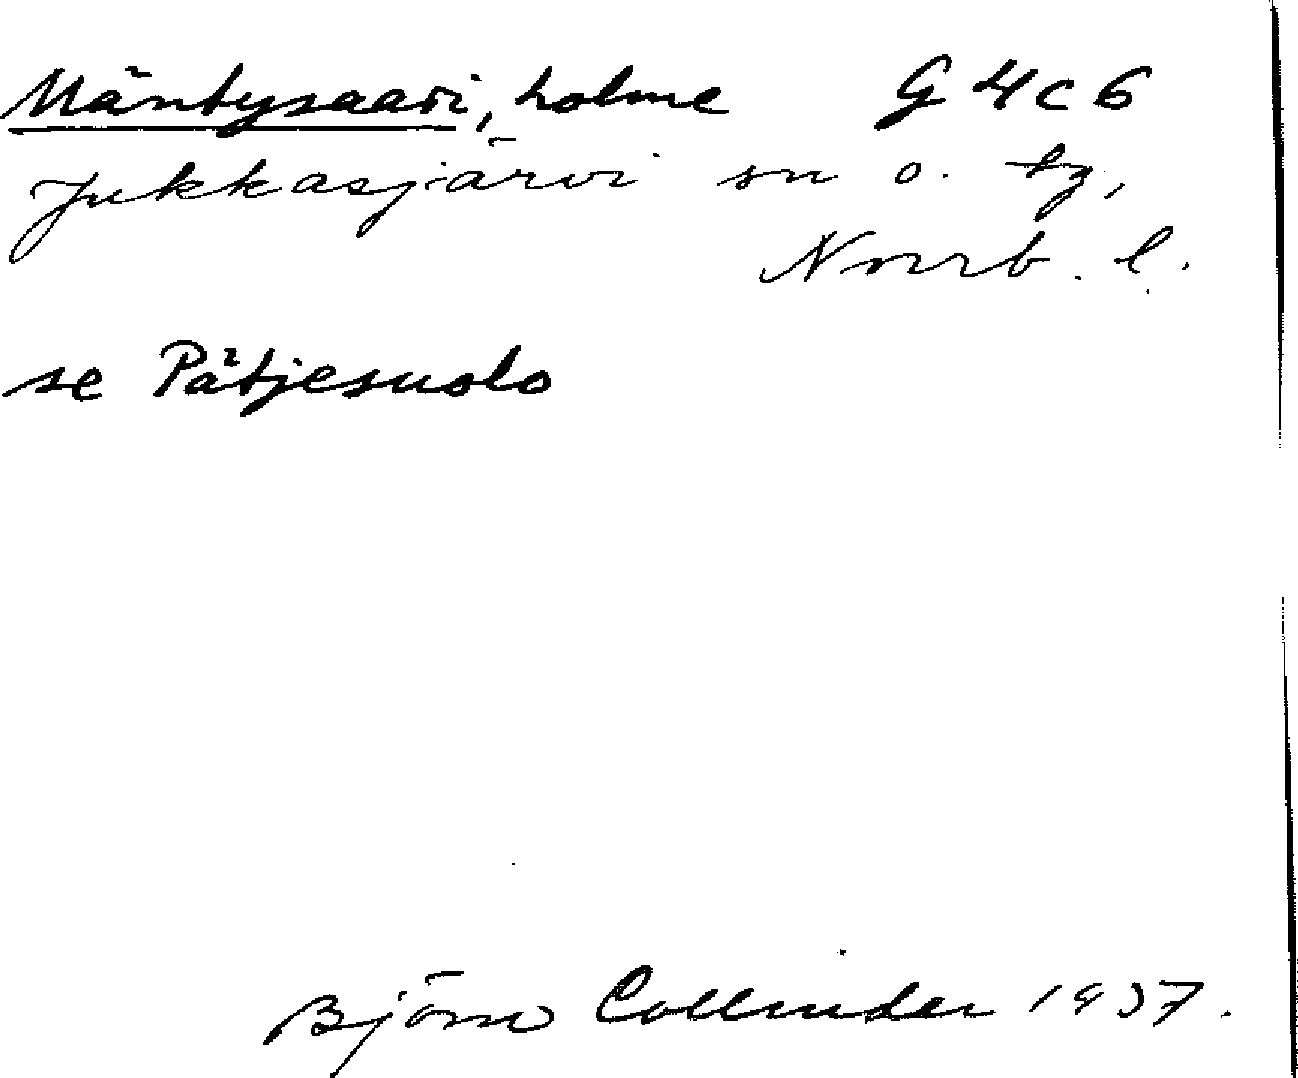 Mäntysaari, holme G 4 c 6
Jukkasjärvi sn o. tg,
Norrb. l.
se Pätjesuolo
Björn Collinder 1937.